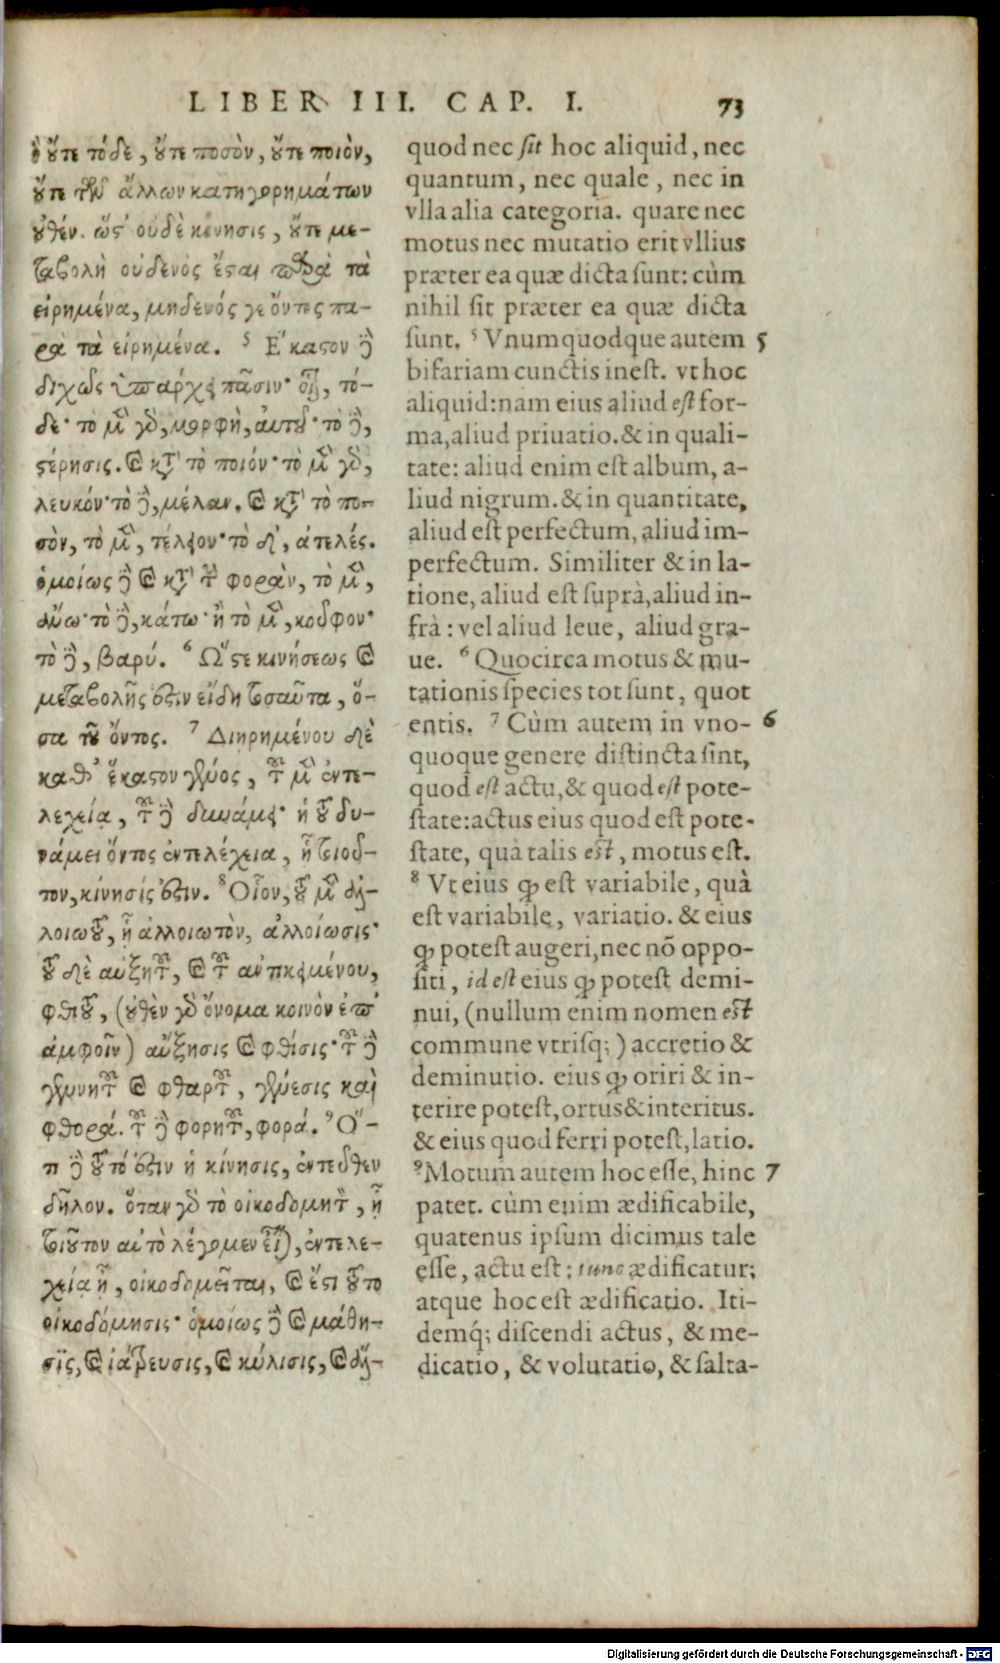 LIBER III. CAP. I. 73
ὃ οὔτε τόδε, οὔτε ποσὸν, οὔτε ποιὸν,
οὔτε τῶν ἄλλων κατηγορημάτων
οὐθέν. ὥστ' οὐδὲ κίνησις, οὔτε με-
ταβολὴ οὐδενὸς ἔσται παρὰ τὰ
εἰρημένα, μηδενός γε ὄντος πα-
ρὰ τὰ εἰρημένα. ⁵ Ἕκαστον δὲ
διχῶς ὑπάρχει πᾶσιν· οἷον, τό-
δε· τὸ μὲν γὰρ, μορφὴ, αὐτοῦ· τὸ δὲ,
στέρησις. καὶ κατὰ τὸ ποιόν· τὸ μὲν γὰρ,
λευκόν· τὸ δὲ, μέλαν. καὶ κατὰ τὸ πο-
σὸν, τὸ μὲν, τέλειον· τὸ δ', ἀτελές.
ὁμοίως δὲ καὶ κατὰ τὴν φορὰν, τὸ μὲν,
ἄνω· τὸ δὲ, κάτω· ἢ τὸ μὲν, κοῦφον·
τὸ δὲ, βαρύ. ⁶ Ὥστε κινήσεως καὶ
μεταβολῆς ἐστιν εἴδη τοσαῦτα, ὅ-
σα τοῦ ὄντος. ⁷ Διηρημένου δὲ
καθ' ἕκαστον γένος, τοῦ μὲν ἐντε-
λεχεία, τοῦ δὲ δυνάμει· ἡ τοῦ δυ-
νάμει ὄντος ἐντελέχεια, ᾗ τοιοῦ-
τον, κίνησίς ἐστιν. ⁸ Οἷον, τοῦ μὲν ἀλ-
λοιωτοῦ, ᾗ ἀλλοιωτὸν, ἀλλοίωσις·
τοῦ δὲ αὐξητοῦ, καὶ τοῦ ἀντικειμένου,
φθιτοῦ, (οὐθὲν γὰρ ὄνομα κοινὸν ἐπ'
ἀμφοῖν) αὔξησις καὶ φθίσις· τοῦ δὲ
γεννητοῦ καὶ φθαρτοῦ, γένεσις καὶ
φθορά. τοῦ δὲ φορητοῦ, φορά. ⁹ Ὅ-
τι δὲ τοῦτό ἐστιν ἡ κίνησις, ἐντεῦθεν
δῆλον. ὅταν γὰρ τὸ οἰκοδομητὸν, ᾗ
τοιοῦτον αὐτὸ λέγομεν εἶναι, ἐντελε-
χείᾳ ᾖ, οἰκοδομεῖται, καὶ ἔστι τοῦτο
οἰκοδόμησις· ὁμοίως δὲ καὶ μάθη-
σις, καὶ ἰάτρευσις, καὶ κύλισις, καὶ ἅλ-
quod nec sit hoc aliquid, nec
quantum, nec quale, nec in
vlla alia categoria. quare nec
motus nec mutatio erit vllius
præter ea quæ dicta sunt: cùm
nihil sit præter ea quæ dicta
sunt. ⁵ Vnumquodque autem 5
bifariam cunctis inest. vt hoc
aliquid: nam eius aliud est for-
ma, aliud priuatio. & in quali-
tate: aliud enim est album, a-
liud nigrum. & in quantitate,
aliud est perfectum, aliud im-
perfectum. Similiter & in la-
tione, aliud est suprà, aliud in-
frà: vel aliud leue, aliud gra-
ue. ⁶ Quocirca motus & mu-
tationis species tot sunt, quot
entis. ⁷ Cùm autem in vno- 6
quoque genere distincta sint,
quod est actu, & quod est pote-
state: actus eius quod est pote-
state, quà talis est, motus est.
⁸ Vt eius qđ est variabile, quà
est variabile, variatio. & eius
qđ potest augeri, nec nō oppo-
siti, id est eius qđ potest demi-
nui, (nullum enim nomen est
commune vtrisq;) accretio &
deminutio. eius qđ oriri & in-
terire potest, ortus & interitus.
& eius quod ferri potest, latio.
⁹ Motum autem hoc esse, hinc 7
patet. cùm enim ædificabile,
quatenus ipsum dicimus tale
esse, actu est: tunc ædificatur;
atque hoc est ædificatio. Iti-
demq́; discendi actus, & me-
dicatio, & volutatio, & salta-
Digitalisierung gefördert durch die Deutsche Forschungsgemeinschaft - DFG